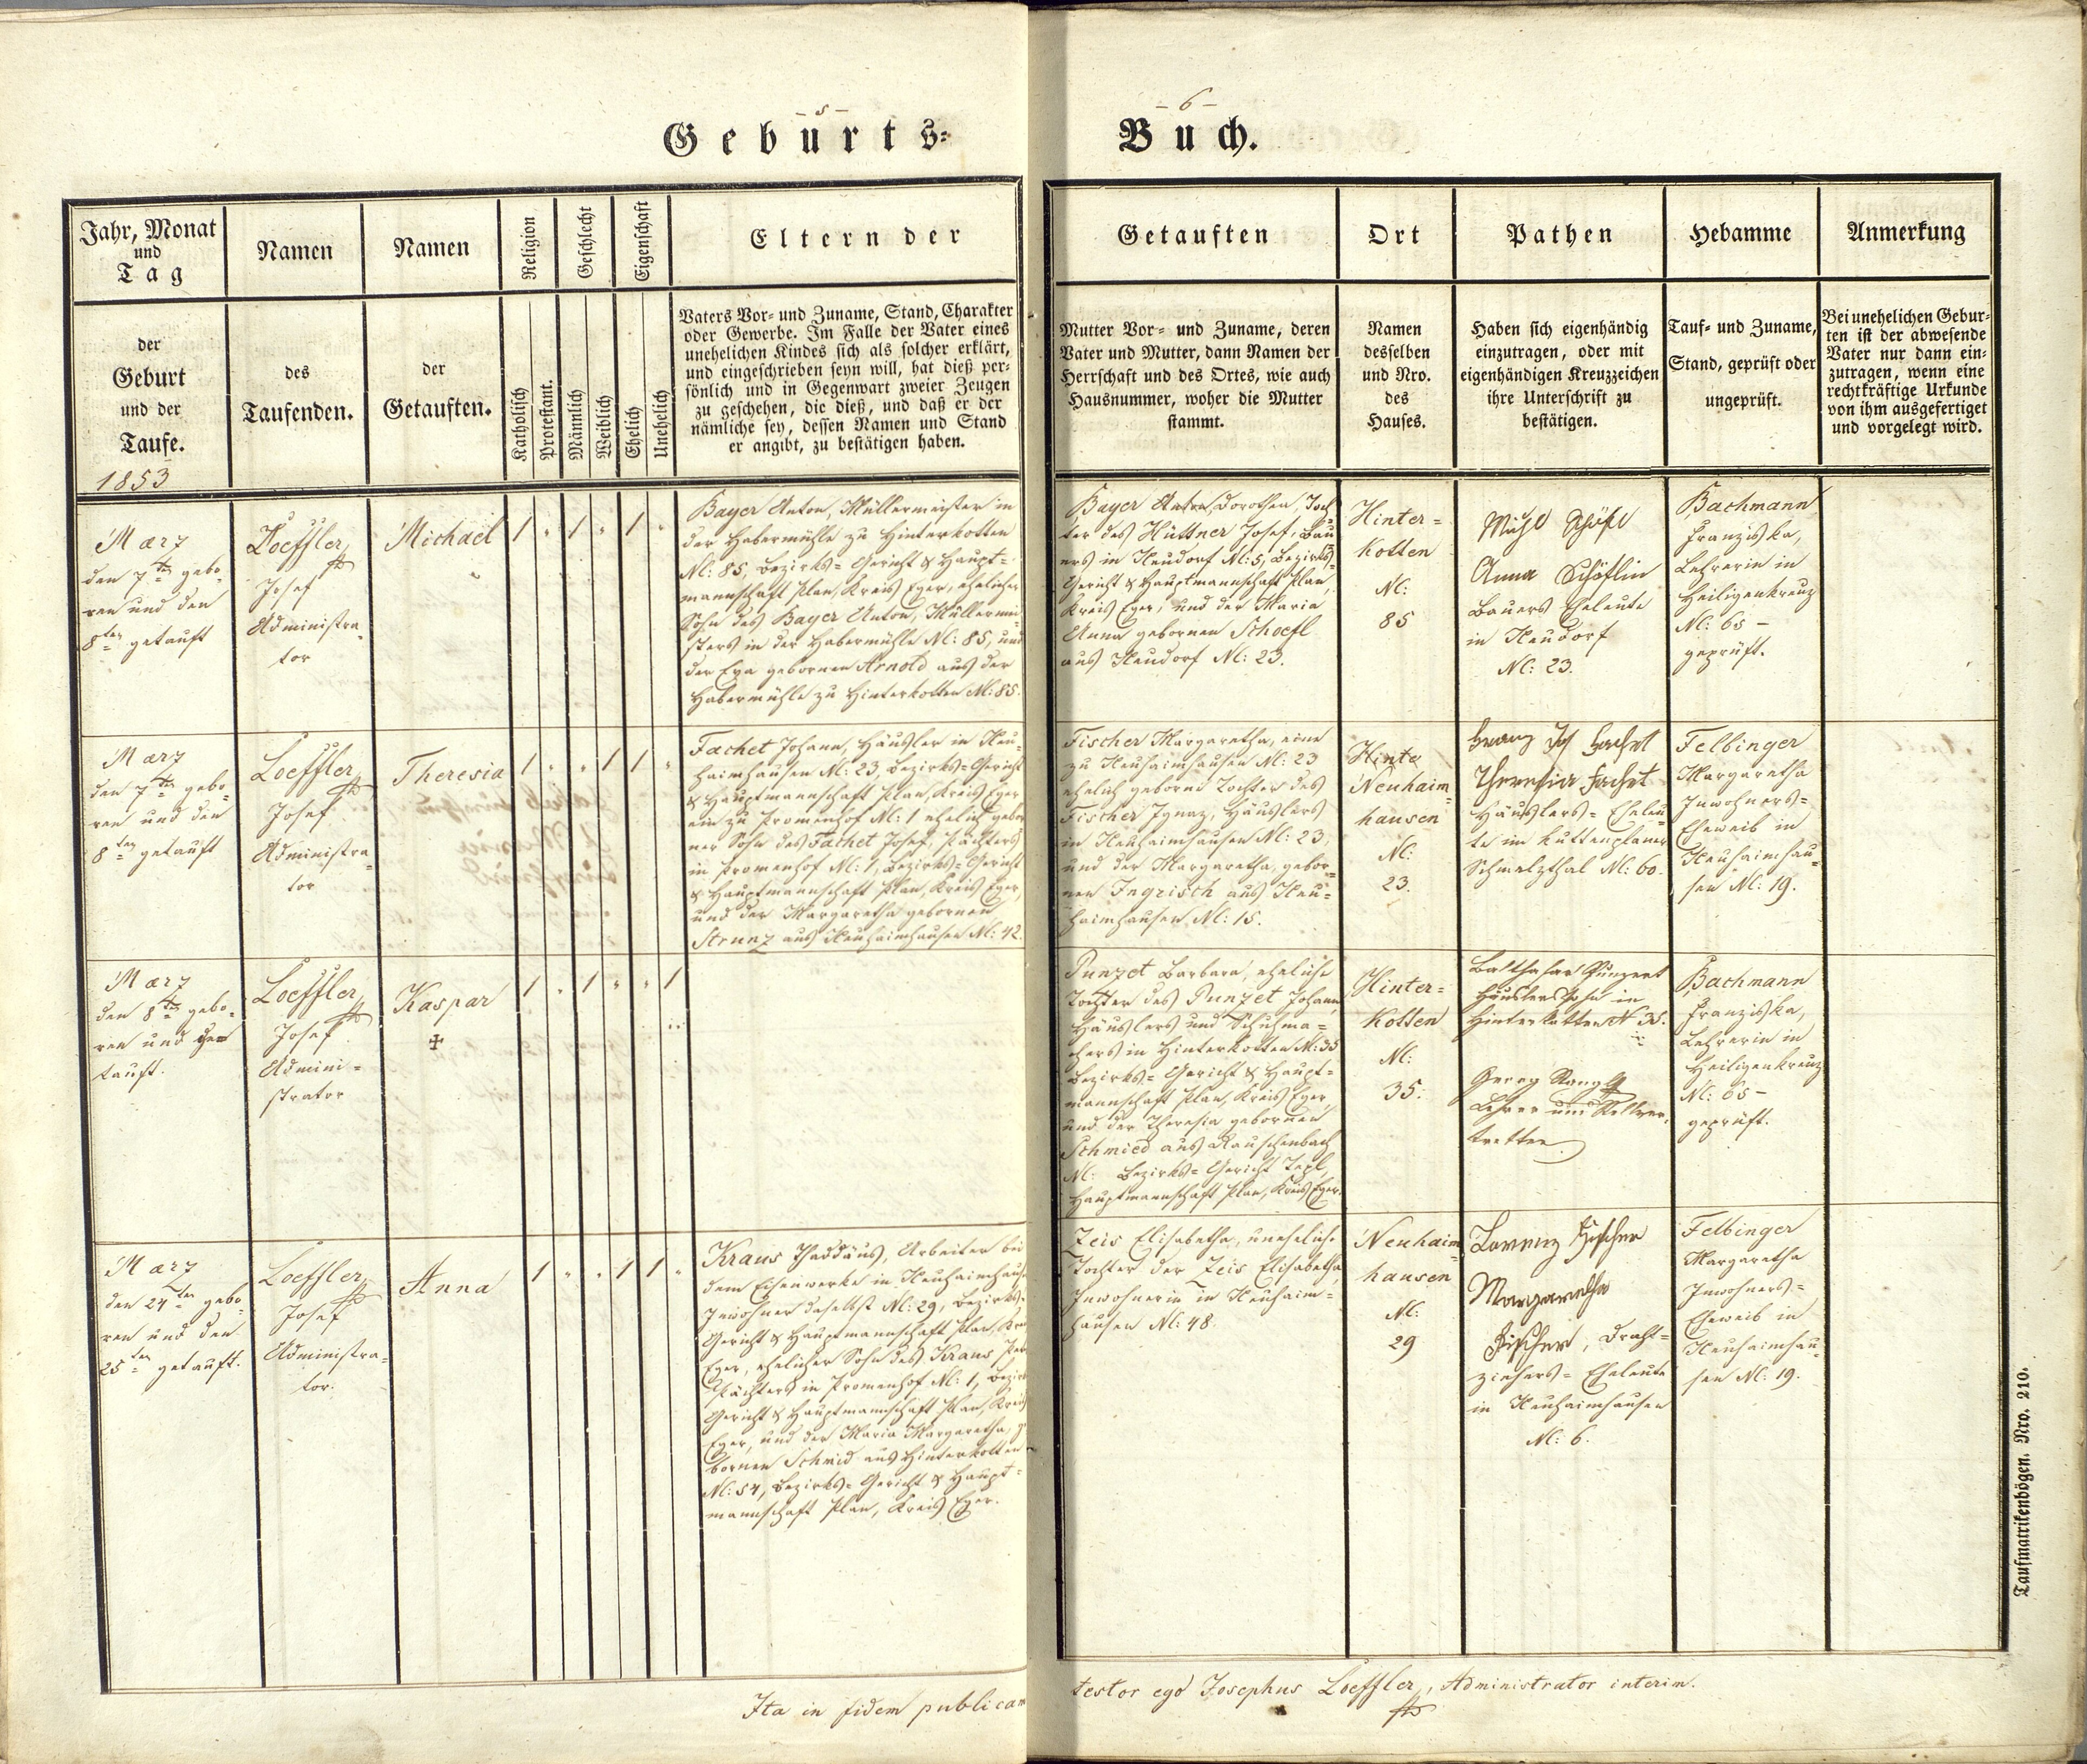 - 5 -
- 6 -
Geburts-
Buch.
Jahr, Monat
und
Tag
Namen
Namen
Religion
Geschlecht
Eigenschaft
Eltern der
Getauften
Ort
Pathen
Hebamme
Anmerkung
der
Geburt
und der
Taufe.
des
Taufenden.
der
Getauften.
Katholisch
Protestant.
Männlich
Weiblich
Ehelich
Unehelich
Vaters Vor- und Zuname, Stand, Charakter
oder Gewerbe. Im Falle der Vater eines
unehelichen Kindes sich als solcher erklärt,
und eingeschrieben seyn will, hat dieß per-
sönlich und in Gegenwart zweier Zeugen
zu geschehen, die dieß, und daß er der
nämliche sey, dessen Namen und Stand
er angibt, zu bestätigen haben.
Mutter Vor- und Zuname, deren
Vater und Mutter, dann Namen der
Herrschaft und des Ortes, wie auch
Hausnummer, woher die Mutter
stammt.
Namen
desselben
und Nro.
des
Hauses.
Haben sich eigenhändig
einzutragen, oder mit
eigenhändigen Kreuzzeichen
ihre Unterschrift zu
bestätigen.
Tauf- und Zuname,
Stand, geprüft oder
ungeprüft.
Bei unehelichen Gebur-
ten ist der abwesende
Vater nur dann ein-
zutragen, wenn eine
rechtkräftige Urkunde
von ihm ausgefertiget
und vorgelegt wird.
1853
Maerz
den 7ten gebo-
ren und den
8ten getauft
Loeffler
Josef
Administra-
tor
Michael
1 " 1 " 1 "
Bayer Anton, Müllermeister in
der Habermühle zu Hinterkotten
N: 85, Bezirks-Gericht & Haupt-
mannschaft Plan, Kreis Eger, ehelicher
Sohn des Bayer Anton, Müllermei-
sters in der Habermühle N: 85, und
der Eva gebornen Arnold aus der
Habermühle zu Hinterkotten N: 85.
Bayer Dorothea, Toch-
ter des Hüttner Josef, Bau-
ers in Neudorf N: 5, Bezirks-
Gericht & Hauptmannschaft Plan,
Kreis Eger, und der Maria
Anna gebornen Schoefl
aus Neudorf N: 23.
Hinter-
kotten
N:
85
Schöfl
Anna Schöflin
Bauers Eheleute
in Neudorf
N: 23.
Bachmann
Franziska,
Lehrerin in
Heiligenkreuz
N: 65 -
geprüft.
Maerz
den 7ten gebo-
ren und den
8ten getauft
Loeffler
Josef
Administra-
tor
Theresia
1 " " 1 1 "
Fachet Johann, Häusler in Neu-
haimhausen N: 23, Bezirks-Gericht
& Hauptmannschaft Plan, Kreis Eger
ein zu Promenhof N: 1 ehelich gebor
ner Sohn des Fachet Josef, Pächters
in Promenhof N: 1, Bezirks-Gericht
& Hauptmannschaft Plan, Kreis Eger,
und der Margaretha gebornen
Strunz aus Neuhaimhausen N: 42.
Fischer Margaretha, eine
zu Neuhaimhausen N: 23
ehelich geborne Tochter des
Fischer Ignaz, Häuslers
in Neuhaimhausen N: 23,
und der Margaretha gebor-
nen Ingrisch aus Neu-
haimhausen N: 15.
Hinte
Neuhaim-
hausen
N:
23.
Franz Jos Fachet
Theresia Fachet
Häuslers-Eheleu-
te im Kuttenplaner
Schmelzthal N: 60.
Felbinger
Margaretha
Inwohners-
Eheweib in
Neuhaimhau-
sen N: 19.
Maerz
den 8ten gebo-
ren und ge-
tauft.
Loeffler
Josef
Admini-
strator
Kaspar
✝
1 " 1 " " 1
Punzet Barbara, eheliche
Tochter des Punzet Johann,
Häuslers und Schuhma-
chers in Hinterkotten N: 35
Bezirks-Gericht & Haupt-
mannschaft Plan, Kreis Eger,
und der Theresia gebornen
Schmied aus Rauschenbach
N: Bezirks-Gericht Tepl,
Hauptmannschaft Plan, Kreis Eger.
Hinter-
kotten
N:
35.
Balthasar Punzet
Häuslers Sohn in
Hinterkotten N 35.
Georg
Lehrer und Stellver-
tretter
Bachmann
Franziska,
Lehrerin in
Heiligenkreuz
N: 65 -
geprüft.
Maerz
den 24ten gebo-
ren und den
25ten getauft.
Loeffler
Josef
Administra-
tor.
Anna
1 " " 1 1 "
Kraus Thaddäus, Arbeiter bei
dem Eisenwerke in Neuhaimhaus
Inwohner daselbst N: 29, Bezirks-
Gericht & Hauptmannschaft Plan, Kreis
Eger, ehelicher Sohn des Kraus
Pächters in Promenhof N: 1, Bezirks
Gericht & Hauptmannschaft Plan, Kreis
Eger, und der Maria Margaretha, ge
bornen Schmid aus Hinterkotten
N: 54, Bezirks-Gericht & Haupt-
mannschaft Plan, Kreis Eger.
Zeis Elisabetha, uneheliche
Tochter der Zeis Elisabetha
Inwohnerin in Neuhaim-
hausen N: 48.
Neuhaim-
hausen
N:
29
Lorenz Fischer
Margaretha
Fischer, Draht-
ziehers-Eheleute
in Neuhaimhausen
N: 6.
Felbinger
Margaretha
Inwohners-
Eheweib in
Neuhaimhau-
sen N: 19.
Ita in fidem publicam
testor ego Josephus Loeffler, Administrator interim.
Taufmatrikenbögen. Nro. 210.